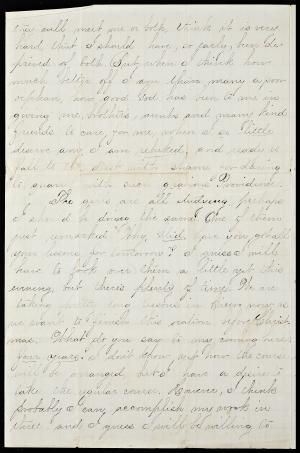 will meet me or both, think it is very
hard, that I should have, so early, been de
prived of both. But, when I think how
much better off I am than many a poor
orphan, how good God has been to me in
giving me, brothers, aunts and many kind
friends to care, for me, when I so little
deserve any I am rebuked, and ready to
fall to the dust with shame for daring
to with such gracious Providence.
The girls are all studying perhaps
I should be doing the same. One of them
just remarked "Why, have you got all
your lessons for tomorrow?" I guess I will
have to look over them a little yet this
evening, but there's plenty of time. We are
taking long lessons in now as
we want to finish this before Christ
mas. What do you say to my coming here
four years? I don't know yet how the course
will be arranged but I have a desire to
take the regular course. However, I think
probably I can accomplish my work in
three and I guess I will be willing to